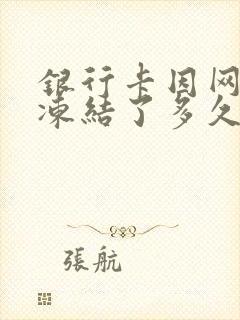 银行卡因网
凍結了多久
張航